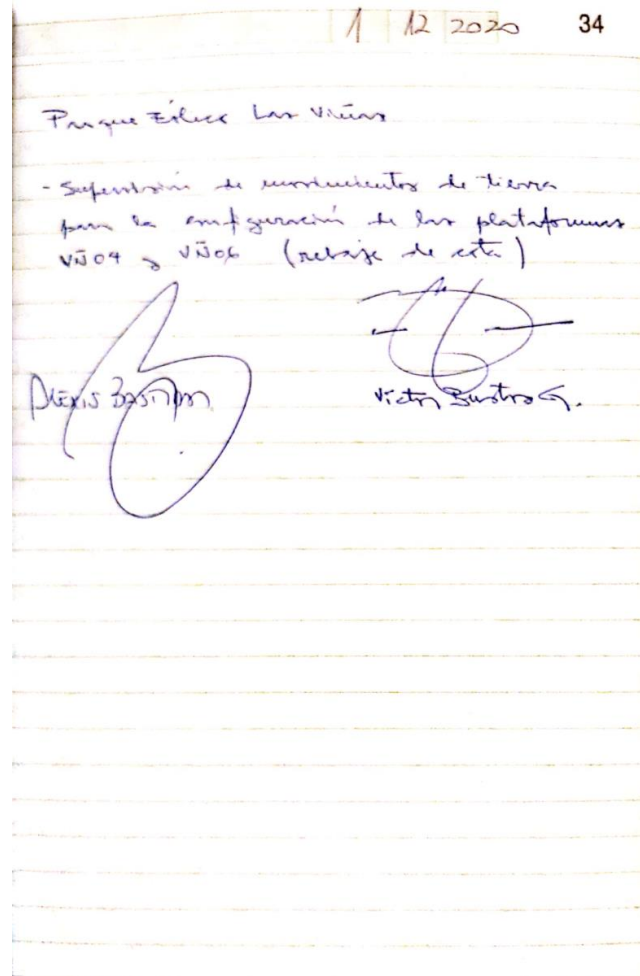 1 12 2020 34
Parque Eólico Las Viñas
- Supervisión de movimientos de tierra
para la configuración de las plataformas
VÑ04 y VÑ06 (rebaje de cota)
ALEXIS
Victor Bustos G.